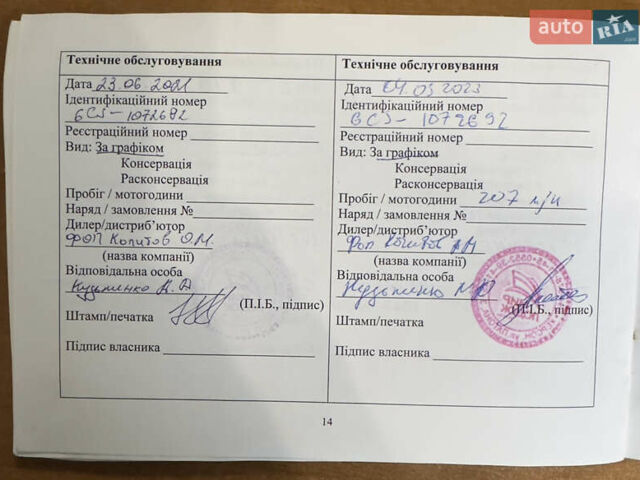 auto RIA.com
Технічне обслуговування
Дата 23.06.2021
Ідентифікаційний номер
6CS-1072692
Реєстраційний номер
Вид: За графіком
Консервація
Расконсервація
Пробіг / мотогодини
Наряд / замовлення №
Дилер/дистриб’ютор
ФОП Копитов О.М.
(назва компанії)
Відповідальна особа
(П.І.Б., підпис)
Штамп/печатка
Підпис власника
Технічне обслуговування
Дата 04.09.2023
Ідентифікаційний номер
6CS-1072692
Реєстраційний номер
Вид: За графіком
Консервація
Расконсервація
Пробіг / мотогодини 207 м/ч
Наряд / замовлення №
Дилер/дистриб’ютор
ФОП Копитов
(назва компанії)
Відповідальна особа
(П.І.Б., підпис)
Штамп/печатка
Підпис власника
14